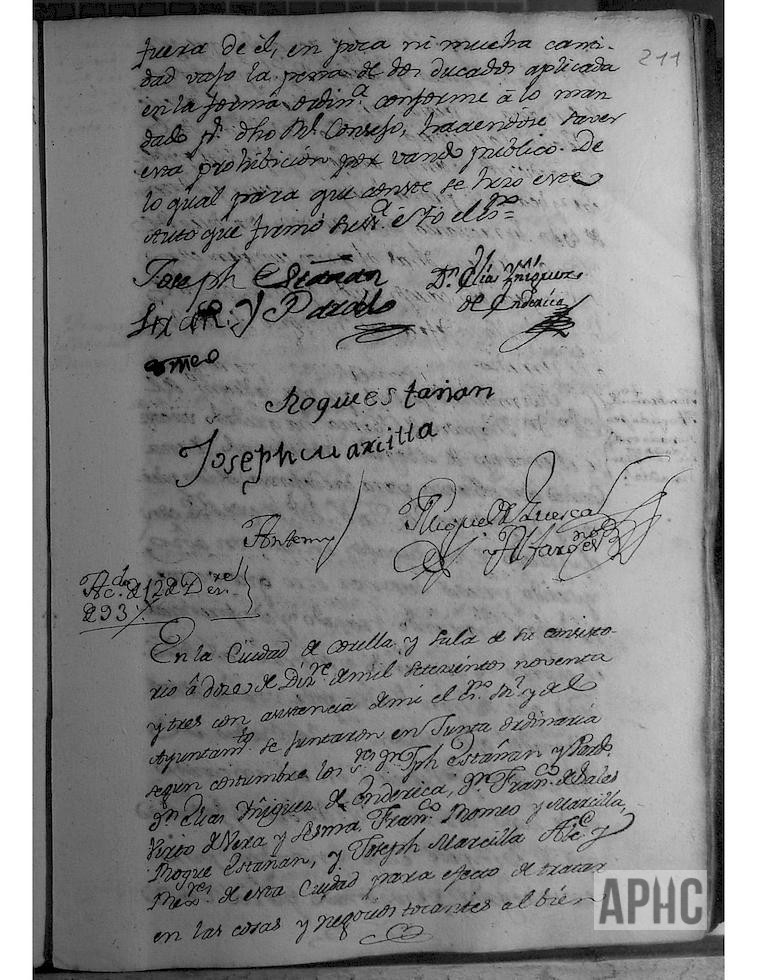 211
fuera de èl, en poca ni mucha canti-
dad vajo la pena de dos ducados aplicada
en la forma ordin.ª conforme à lo man
dado p.r dho Rl. Consejo, haciendose saver
esta prohibicion por vando público. De
lo qual para que conste se hizo este
Auto que firmó su ê Yo el s.no =
Joseph Estañan
y Pardo
D.n Elias Yñiguez
de Enderica
Romeo
Roque estañan
Joseph Marcilla
Antemy
Miguel de Luesca
y Alfaro
Ac.do d 12 d Dizre.
d 93
En la Ciudad de Corella y Sala de su consisto-
rio â doze de Diz.re de mil setezientos noventa
y tres con asistencia de mi el s.no Rl. y del
Ayuntam.to se juntaron en Junta ordinaria
segun costumbre los s.res D.n Jph Estañan y Pardo,
D.n Elias Yñiguez de Enderica, D.n Fran.co de Sales
Virto de Vera y Lesma, Fran.co Romeo y Marcilla,
Roque Estañan, y Joseph Marcilla Alc.e y
Rex.res de esta Ciudad para efecto de tratar
en las cosas y negocios tocantes al bien
APHC